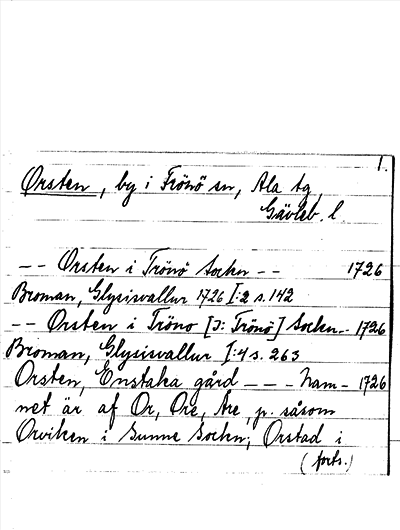 1.
Orsten, by i Trönö sn, Ala tg
Gävleb. l.
-- Orsten i Trönö Sockn -- 1726
Broman, Glysisvallur 1726 I:2 s. 142
-- Orsten i Tröno [ɔ: Trönö] Sockn -- 1726
Broman, Glysisvallur I:4 s. 263
Orsten, Enstaka gård --- Nam- 1726
net är af Or, Ore, Are, p. såsom
Orviken i Sunne Sockn; Orstad i
(forts.)